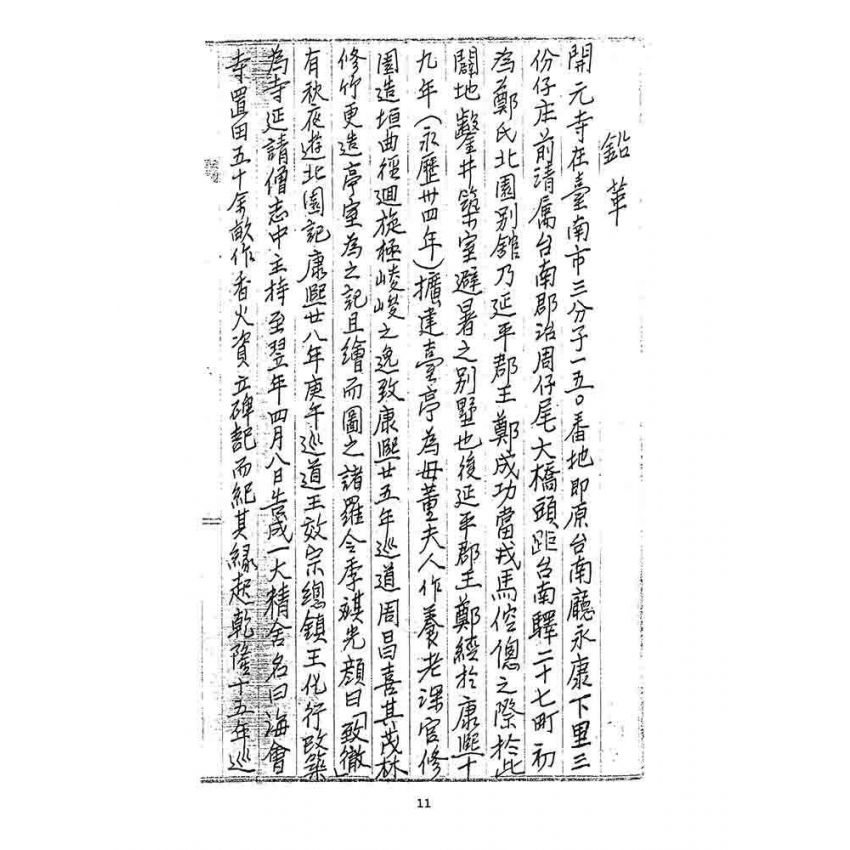 鉛華
開元寺在臺南市三分子一五〇番地即原台南廳永康下里三
份仔庄前清屬台南郡治周仔尾大橋頭距台南驛二十七町初
為鄭氏北園別館乃延平郡王鄭成功當戎馬倥傯之際於此
闢地鑿井築室避暑之別墅也後延平郡王鄭經於康熙十
九年(永歷卅四年)擴建臺亭為母董夫人作養老深宮修
園造垣曲徑迴旋極崚峻之逸致康熙廿五年巡道周昌喜其茂林
修竹更造亭室為之記且繪而圖之諸羅令季麒光顏曰「致徹」
有秋夜遊北園記康熙廿八年庚午巡道王效宗總鎮王化行改築
為寺延請僧志中主持至翌年四月八日告成一大精舍名曰海會
寺置田五十余畝作香火資立碑記而紀其緣起乾隆十五年巡
11